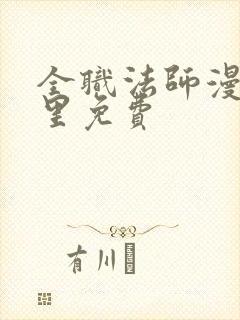 全職法師漫
里免費
有川